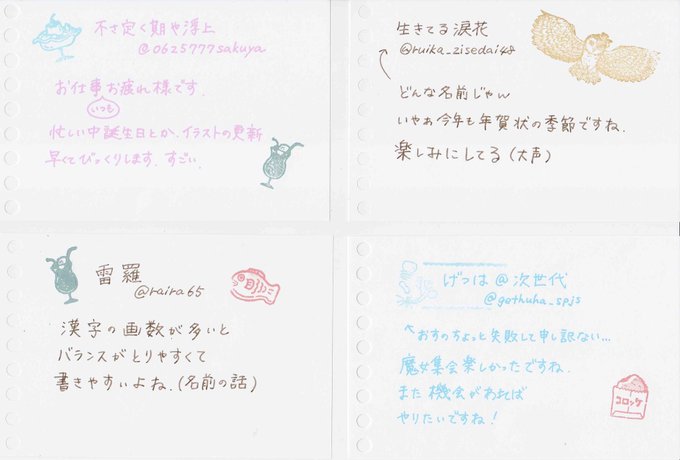 不さ定く期や浮上
@0625777sakuya
お仕事お疲れ様です.
いつも
忙しい中誕生日とか、イラストの更新
早くてびっくりします. すごい.
生きてる涙花
@ruika_zisedai48
どんな名前じゃんw
いやぁ今年も年賀状の季節ですね.
楽しみにしてる(大声)
雷羅
@raira65
漢字の画数が多いと
バランスがとりやすくて
書きやすいよね.(名前の話)
げつは@次世代
@gethuha_spjs
↖おすのちょっと失敗して申し訳ない...
魔女集会楽しかったですね.
また機会があれば
やりたいですね!
コロッケ